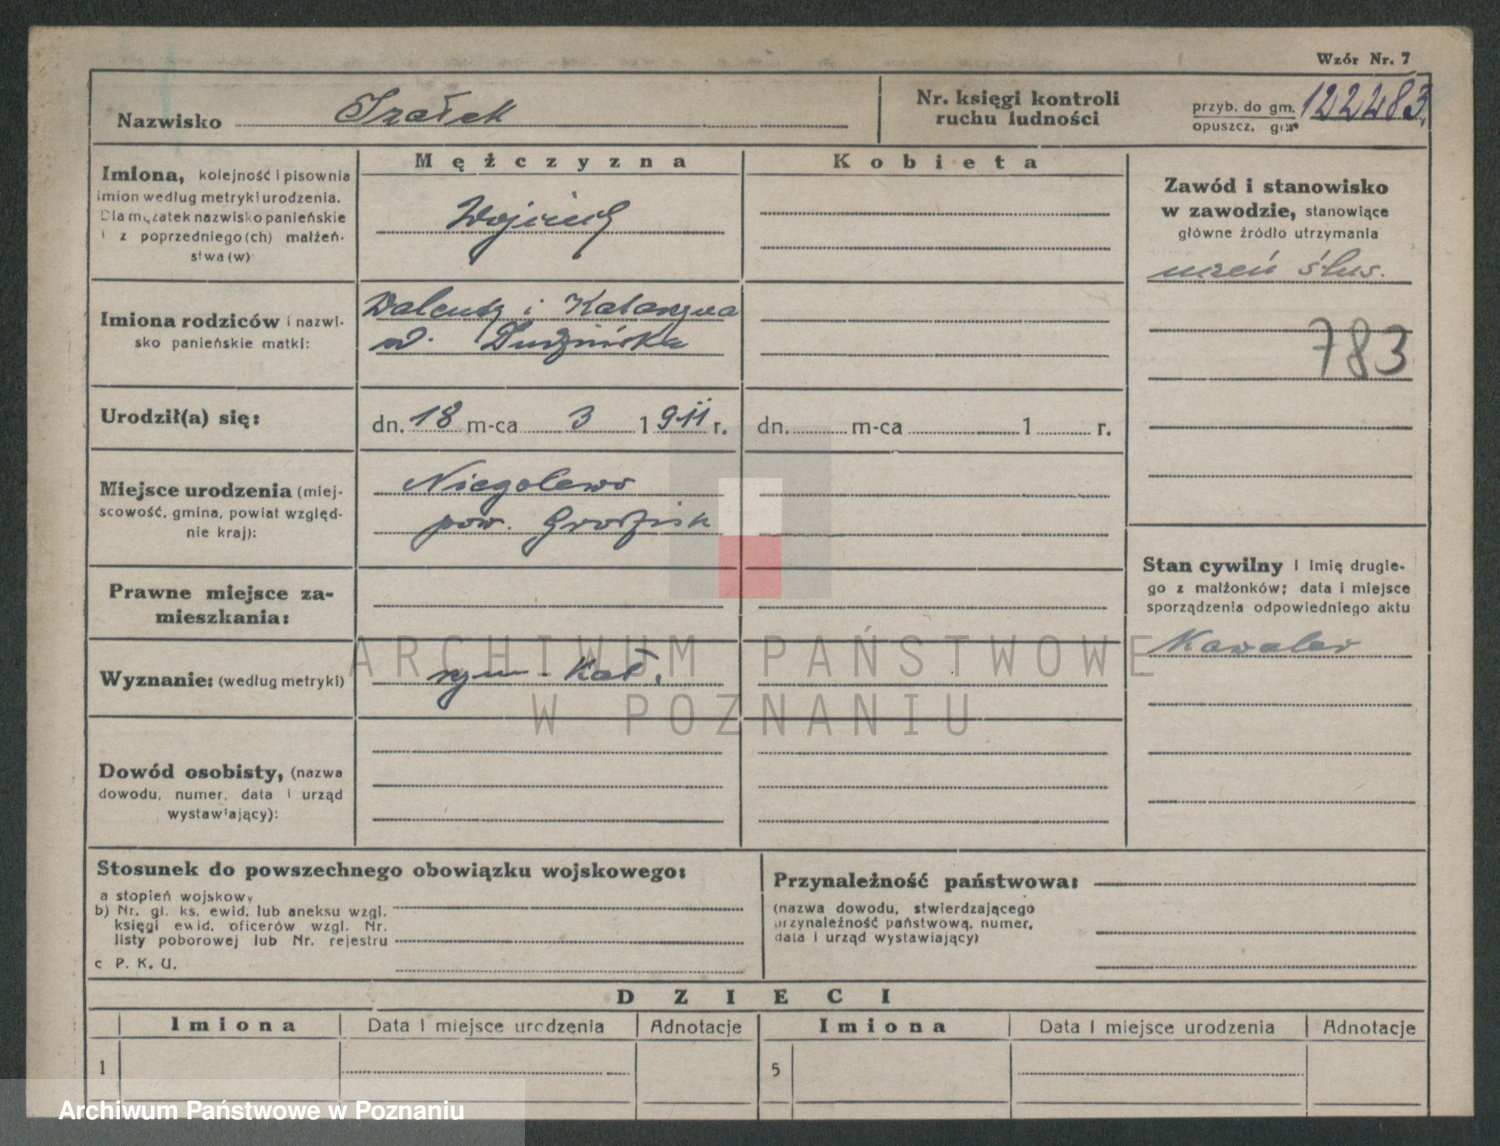 Wzór Nr. 7
Nazwisko
Nr. księgi kontroli
ruchu ludności
przyb. do gm.
opuszcz. gm.
122483
Mężczyzna
Kobieta
Imiona, kolejność i pisownia
imion według metryki urodzenia.
Dla mężatek nazwisko panieńskie
i z poprzedniego(ch) małżeń-
stwa(w)
Wojciech
Zawód i stanowisko
w zawodzie, stanowiące
główne źródło utrzymania
uczeń ślus.
783
Imiona rodziców i nazwi-
sko panieńskie matki:
Walenty i Katarzyna
Urodził(a) się:
dn. 18 m-ca 3 1911 r.
dn. m-ca 1 r.
Miejsce urodzenia (miej-
scowość, gmina, powiat względ-
nie kraj):
Niegolewo
pow. Grodzisk
Stan cywilny i imię drugie-
go z małżonków; data i miejsce
sporządzenia odpowiedniego aktu
Kawaler
Prawne miejsce za-
mieszkania:
Wyznanie: (według metryki)
rzym. Kat.
ARCHIWUM PAŃSTWOWE
W POZNANIU
Dowód osobisty, (nazwa
dowodu, numer, data i urząd
wystawiający):
Stosunek do powszechnego obowiązku wojskowego:
a stopień wojskowy
b) Nr. gl. ks. ewid. lub aneksu wzgl.
księgi ewid. oficerów wzgl. Nr.
listy poborowej lub Nr. rejestru
c P. K. U.
Przynależność państwowa:
(nazwa dowodu, stwierdzającego
przynależność państwową, numer,
data i urząd wystawiający)
DZIECI
Imiona
Data i miejsce urodzenia
Adnotacje
Imiona
Data i miejsce urodzenia
Adnotacje
1
5
Archiwum Państwowe w Poznaniu